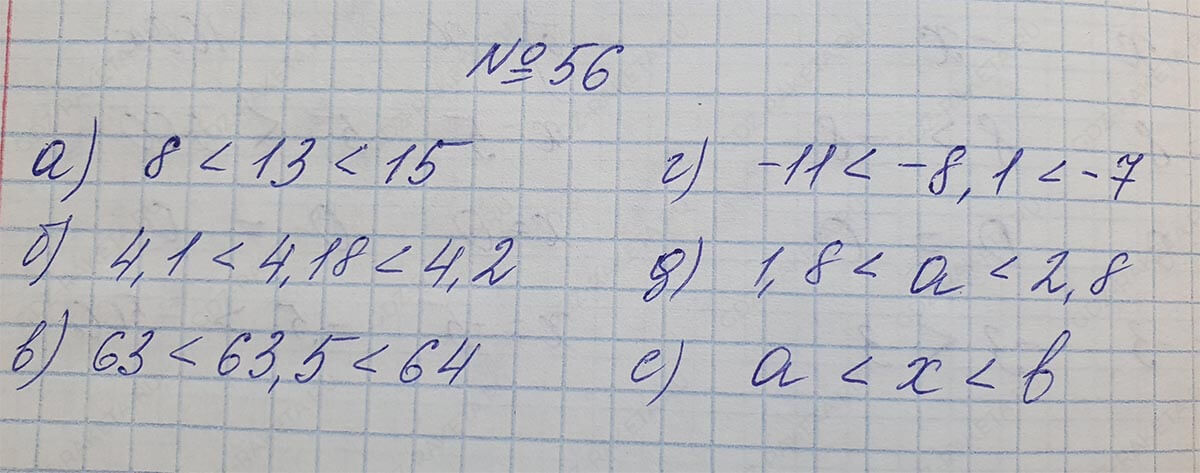 №56
а) 8 < 13 < 15
б) 4,1 < 4,18 < 4,2
в) 63 < 63,5 < 64
г) -11 < -8,1 < -7
д) 1,8 < a < 2,8
е) a < x < b